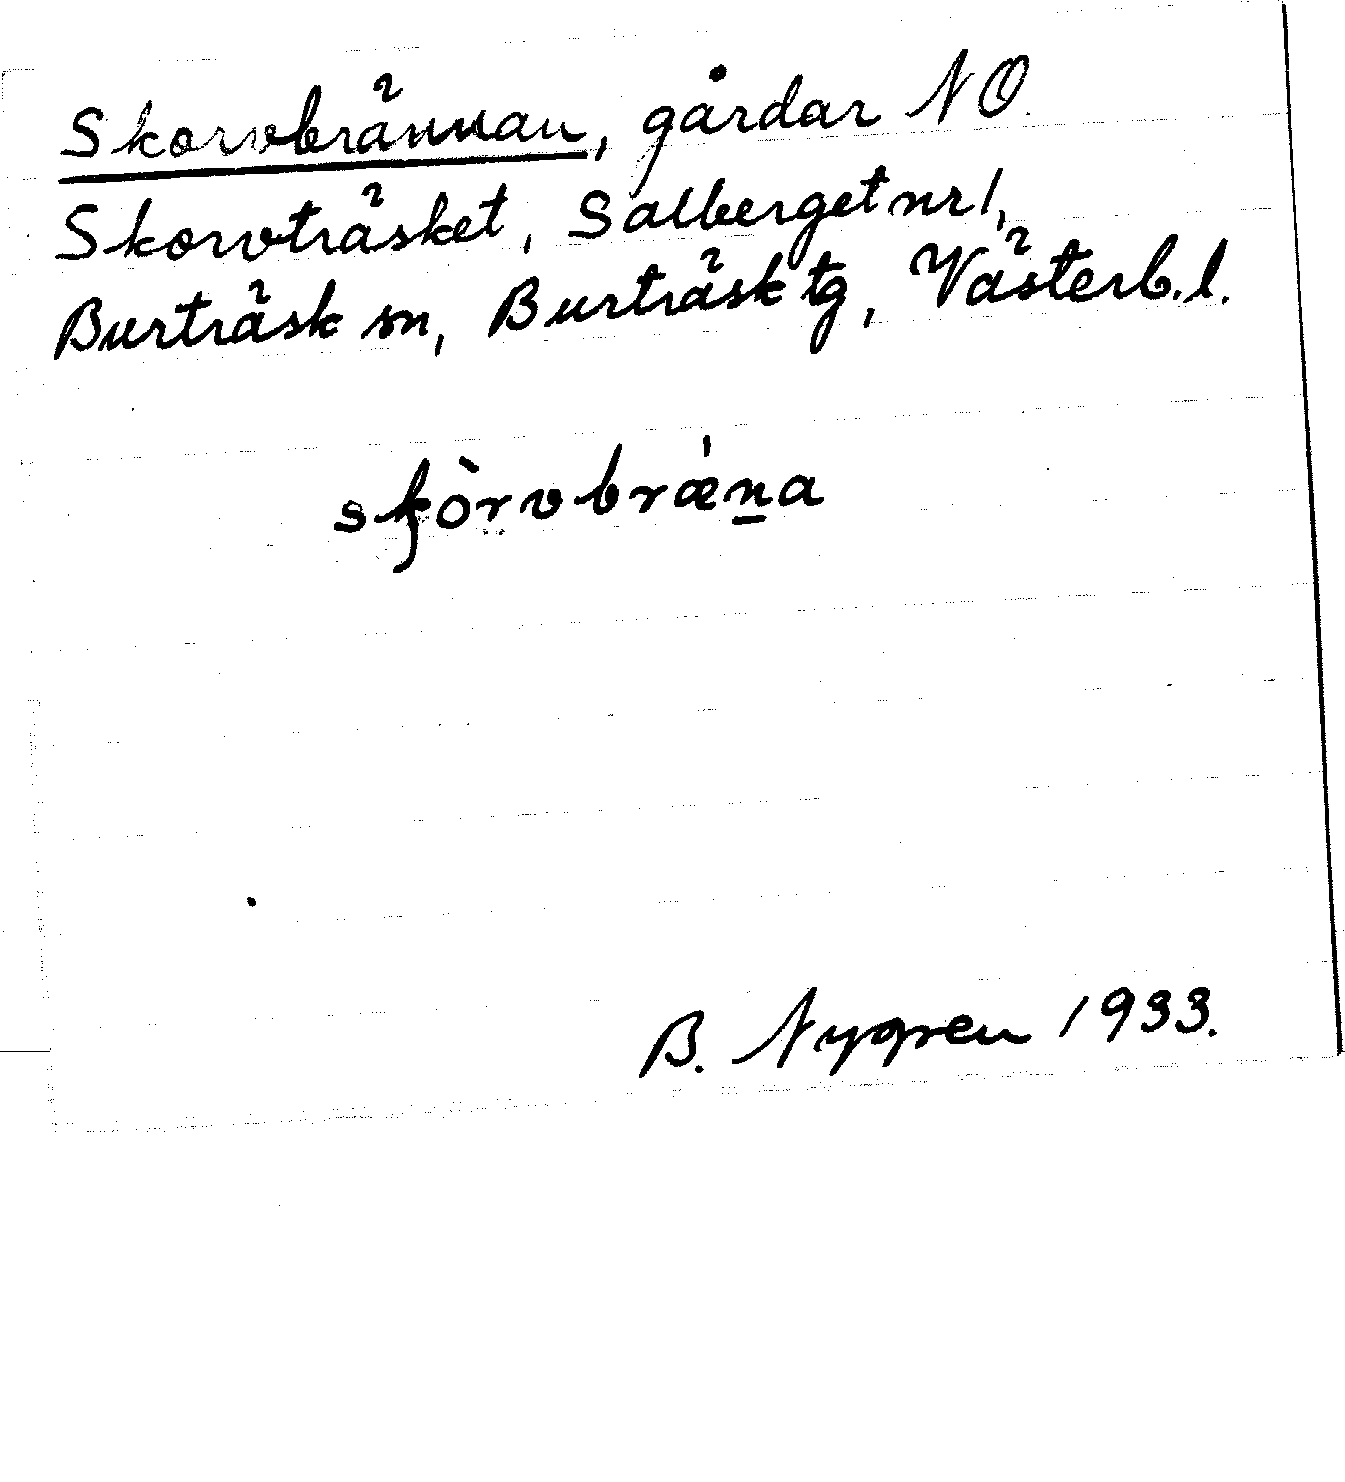 Skorvbrännan, gårdar NO
Skorvträsket, Salberget nr 1,
Burträsk sn, Burträsk tg, Västerb. l.
skòrvbrǽn̠a
B. Nygren 1933.